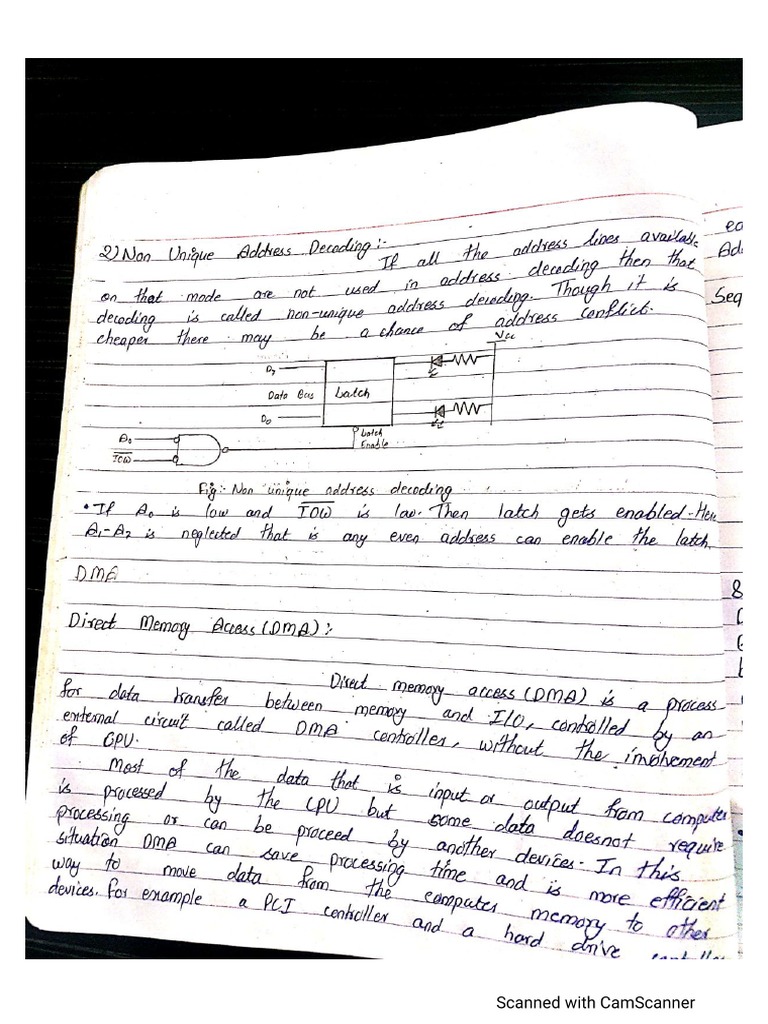 2) Non Unique Address Decoding :-
If all the address lines available
on that mode are not used in address decoding then that
decoding is called non-unique address decoding. Though it is
cheaper there may be a chance of address conflict.
Vcc
D7
Data Bus
Latch
D0
A0
IOW
Latch
Enable
Fig:- Non unique address decoding
• If A0 is low and IOW is low. Then latch gets enabled. Here
A1-A2 is neglected that is any even address can enable the latch.
DMA
Direct Memory Access (DMA) :-
Direct memory access (DMA) is a process
for data transfer between memory and I/O, controlled by an
external circuit called DMA controller, without the involvement
of CPU.
Most of the data that is input or output from computer
is processed by the CPU but some data doesnot require
processing or can be proceed by another devices. In this
situation DMA can save processing time and is more efficient
way to move data from the computer memory to other
devices. For example a PCI controller and a hard drive
Seq
8
Scanned with CamScanner